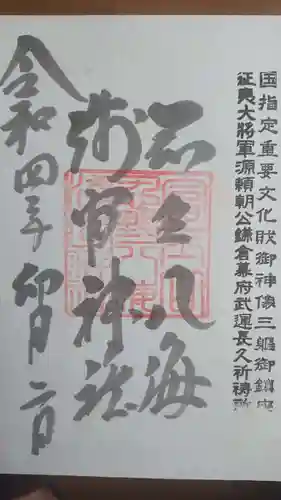 国指定重要文化財御神像三躯御鎮座
征夷大將軍源頼朝公鎌倉幕府武運長久祈禱所
八海
神社
令和四年卯月二日